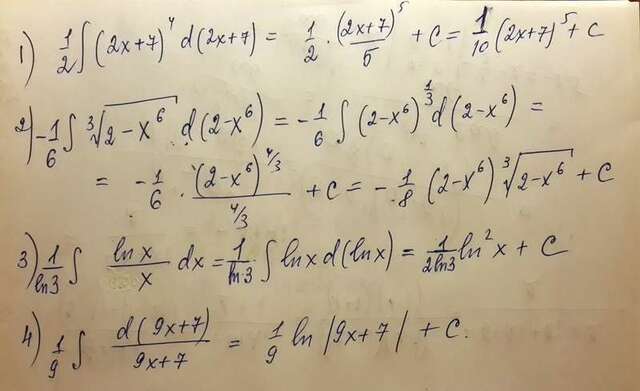 1) 1/2 ∫ (2x+7)⁴ d(2x+7) = 1/2 · (2x+7)⁵/5 + C = 1/10 (2x+7)⁵ + C
2) -1/6 ∫ ∛(2-x⁶) d(2-x⁶) = -1/6 ∫ (2-x⁶)^(1/3) d(2-x⁶) =
= -1/6 · (2-x⁶)^(4/3)/(4/3) + C = -1/8 (2-x⁶) ∛(2-x⁶) + C
3) 1/ln3 ∫ lnx/x dx = 1/ln3 ∫ lnx d(lnx) = 1/2ln3 ln²x + C
4) 1/9 ∫ d(9x+7)/9x+7 = 1/9 ln |9x+7| + C.